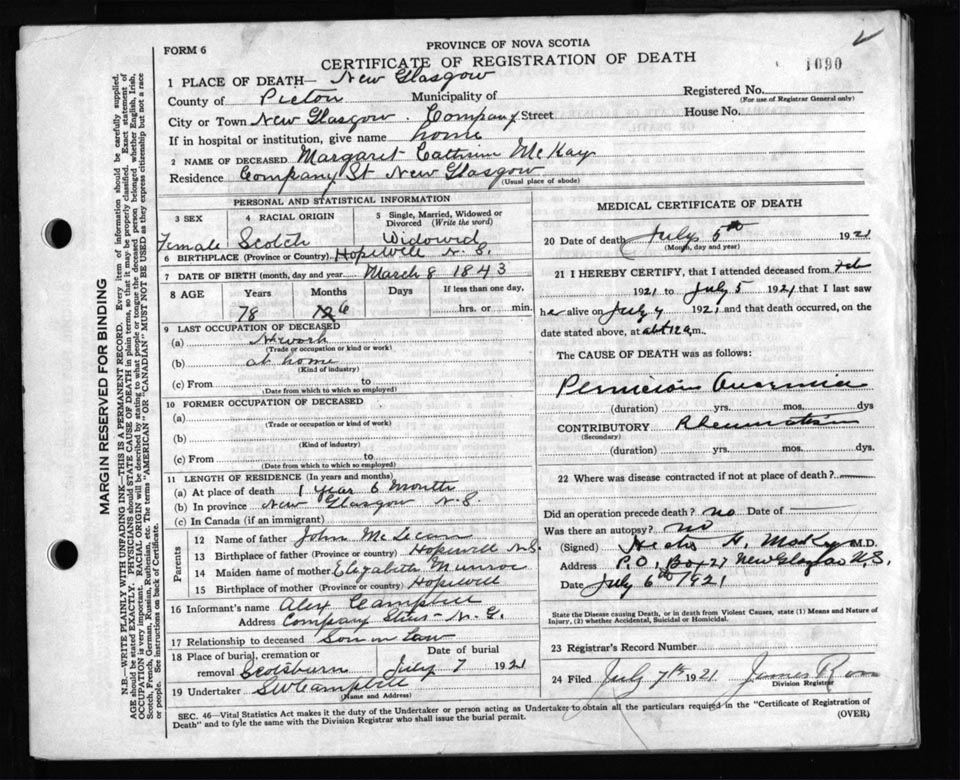 FORM 6
PROVINCE OF NOVA SCOTIA
CERTIFICATE OF REGISTRATION OF DEATH
1090
1 PLACE OF DEATH— New Glasgow
County of Pictou Municipality of
Registered No.
(For use of Registrar General only)
City or Town New Glasgow . Company Street
House No.
If in hospital or institution, give name home
2 NAME OF DECEASED Margaret Cathrine McKay
Residence Company St New Glasgow
(Usual place of abode)
PERSONAL AND STATISTICAL INFORMATION
3 SEX
Female
4 RACIAL ORIGIN
Scotch
5 Single, Married, Widowed or Divorced (Write the word)
Widowed
6 BIRTHPLACE (Province or Country) Hopewell N.S.
7 DATE OF BIRTH (month, day and year March 8 1843
8 AGE Years Months Days If less than one day,
78 6 hrs. or min.
9 LAST OCCUPATION OF DECEASED
(a) H. work
(Trade or occupation or kind or work)
(b) at home
(Kind of industry)
(c) From to
(Date from which to which so employed)
10 FORMER OCCUPATION OF DECEASED
(a)
(Trade or occupation or kind of work)
(b)
(Kind of industry)
(c) From to
(Date from which to which so employed)
11 LENGTH OF RESIDENCE (In years and months)
(a) At place of death 1 year 6 Months
(b) In province New Glasgow N.S.
(c) In Canada (if an immigrant)
Parents
12 Name of father John Mc
13 Birthplace of father (Province or country) Hopewell N.S.
14 Maiden name of mother Elizabeth Munroe
15 Birthplace of mother (Province or country) Hopewell
16 Informant's name Alex Campbell
Address Company N. G.
17 Relationship to deceased Son in Law
18 Place of burial, cremation or removal Scotsburn
Date of burial
July 7 1921
19 Undertaker Campbell
(Name and Address)
MEDICAL CERTIFICATE OF DEATH
20 Date of death July 5th 1921
(Month, day and year)
21 I HEREBY CERTIFY, that I attended deceased from Feb
1921 to July 5 1921 that I last saw
her alive on July 4 1921 and that death occurred, on the
date stated above, at abt 12 a,m.
The CAUSE OF DEATH was as follows:
Pernicious
(duration) yrs. mos. dys
CONTRIBUTORY Rheumatism
(Secondary)
(duration) yrs. mos. dys.
22 Where was disease contracted if not at place of death?
Did an operation precede death? no Date of
Was there an autopsy? no
(Signed) H. M.D.
Address P.O. Box 27 New Glasgow N.S.
Date July 6th 1921
State the Disease causing Death, or in death from Violent Causes, state (1) Means and Nature of Injury, (2) whether Accidental, Suicidal or Homicidal.
23 Registrar's Record Number
24 Filed July 7th 1921 James
Division Registrar
SEC. 46—Vital Statistics Act makes it the duty of the Undertaker or person acting as Undertaker to obtain all the particulars required in the "Certificate of Registration of
Death" and to fyle the same with the Division Registrar who shall issue the burial permit.
(OVER)
MARGIN RESERVED FOR BINDING
N.B.—WRITE PLAINLY WITH UNFADING INK—THIS IS A PERMANENT RECORD. Every item of information should be carefully supplied.
AGE should be stated EXACTLY. PHYSICIANS should STATE CAUSE OF DEATH in plain terms, so that it may be properly classified. Exact statement of
OCCUPATION is very important. RACIAL ORIGIN will be described by stating to what people or tongue the deceased person belonged, whether English, Irish,
Scotch, French, German, Russian, Ruthenian, etc. The terms "AMERICAN" OR "CANADIAN" MUST NOT BE USED as they express citizenship but not a race
or people. See instructions on back of Certificate.